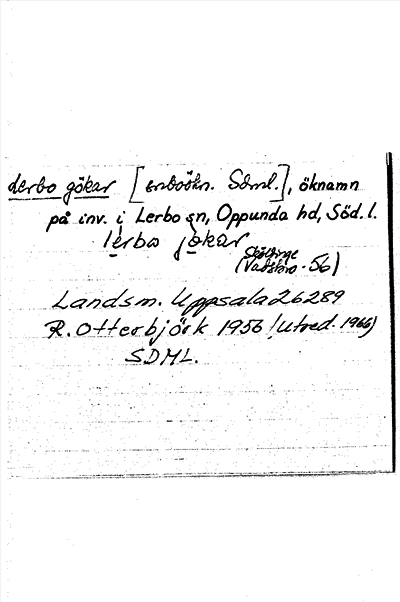 Lerbo gökar [inboökn. Sdml.], öknamn
på inv. i Lerbo sn, Oppunda hd, Söd. l.
lerbo jökar
Sköldinge
(Vadsbro-56)
Landsm. Uppsala 26289
R. Otterbjörk 1956 (utred. 1966)
SDML.